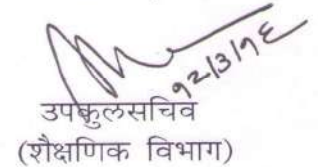 १२/३/१६
उपकुलसचिव
(शैक्षणिक विभाग)